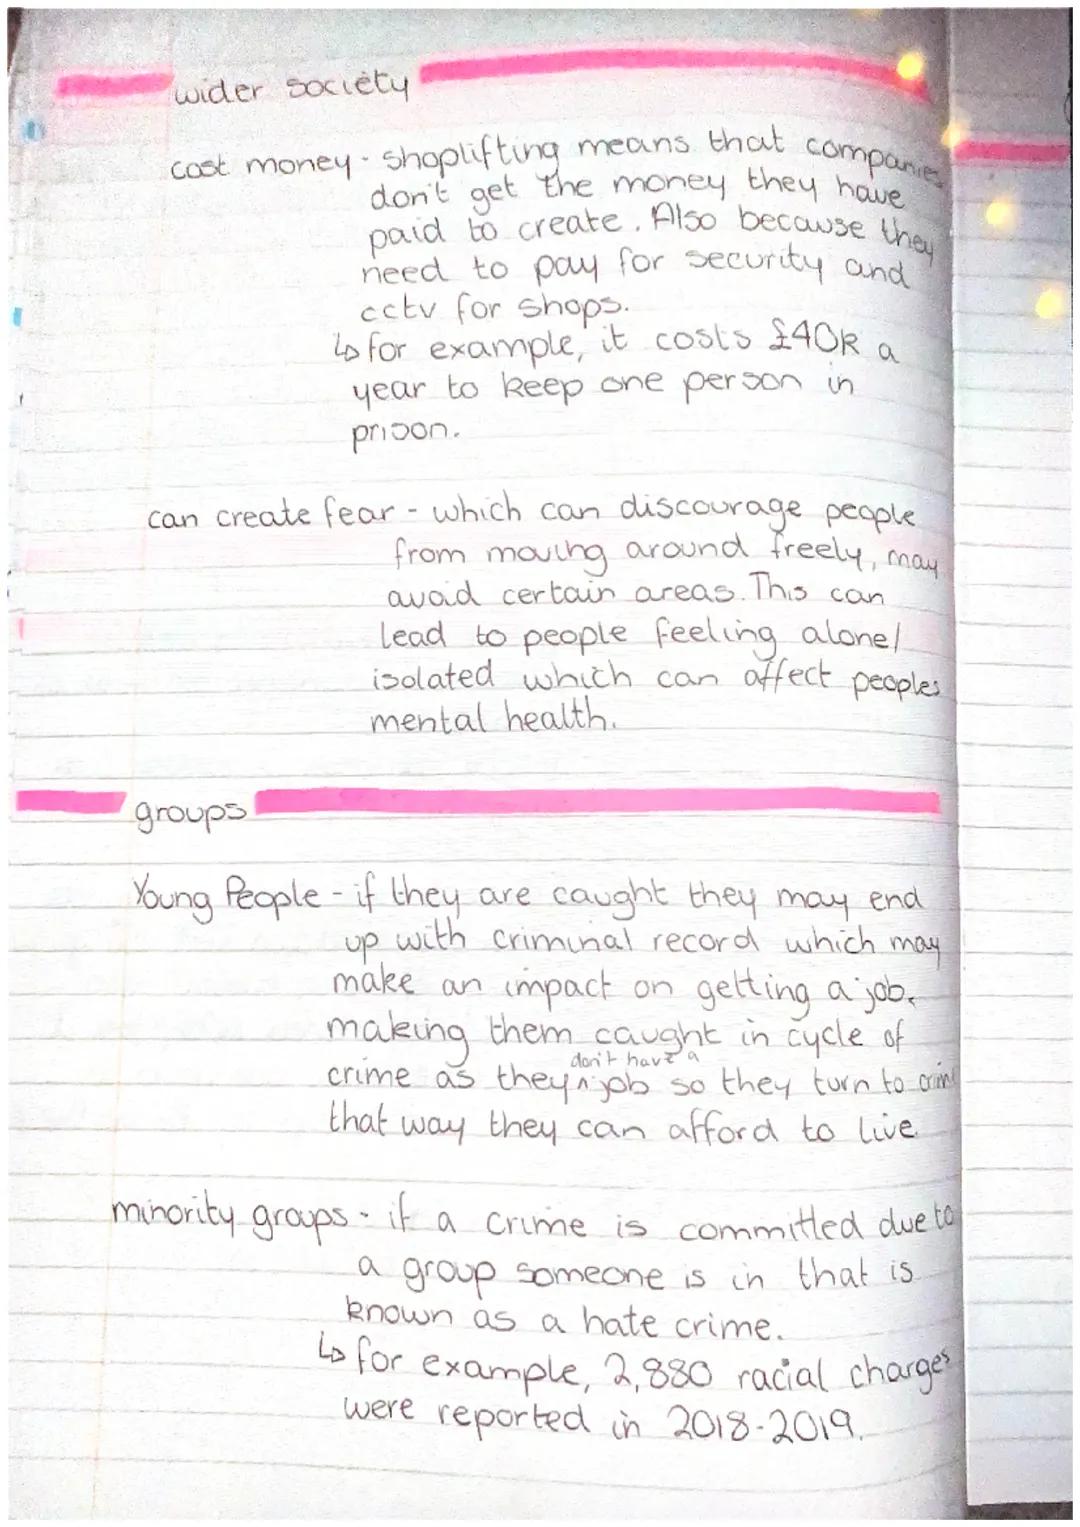 wider society
cost money - shoplifting means that companies
don't get the money they have
paid to create. Also because they
need to pay for security and
cctv for shops.
↳ for example, it costs £40k a
year to keep one person in
prison.
can create fear - which can discourage people
from moving around freely, may
avoid certain areas. This can
lead to people feeling alone/
isolated which can affect peoples
mental health.
groups
Young People - if they are caught they may end
up with criminal record which may
make an impact on getting a job,
making them caught in cycle of
don't have a
crime as they ^ job so they turn to crime
that way they can afford to live.
minority groups - if a crime is committed due to
a group someone is in that is
known as a hate crime.
↳ for example, 2,880 racial charges
were reported in 2018-2019.